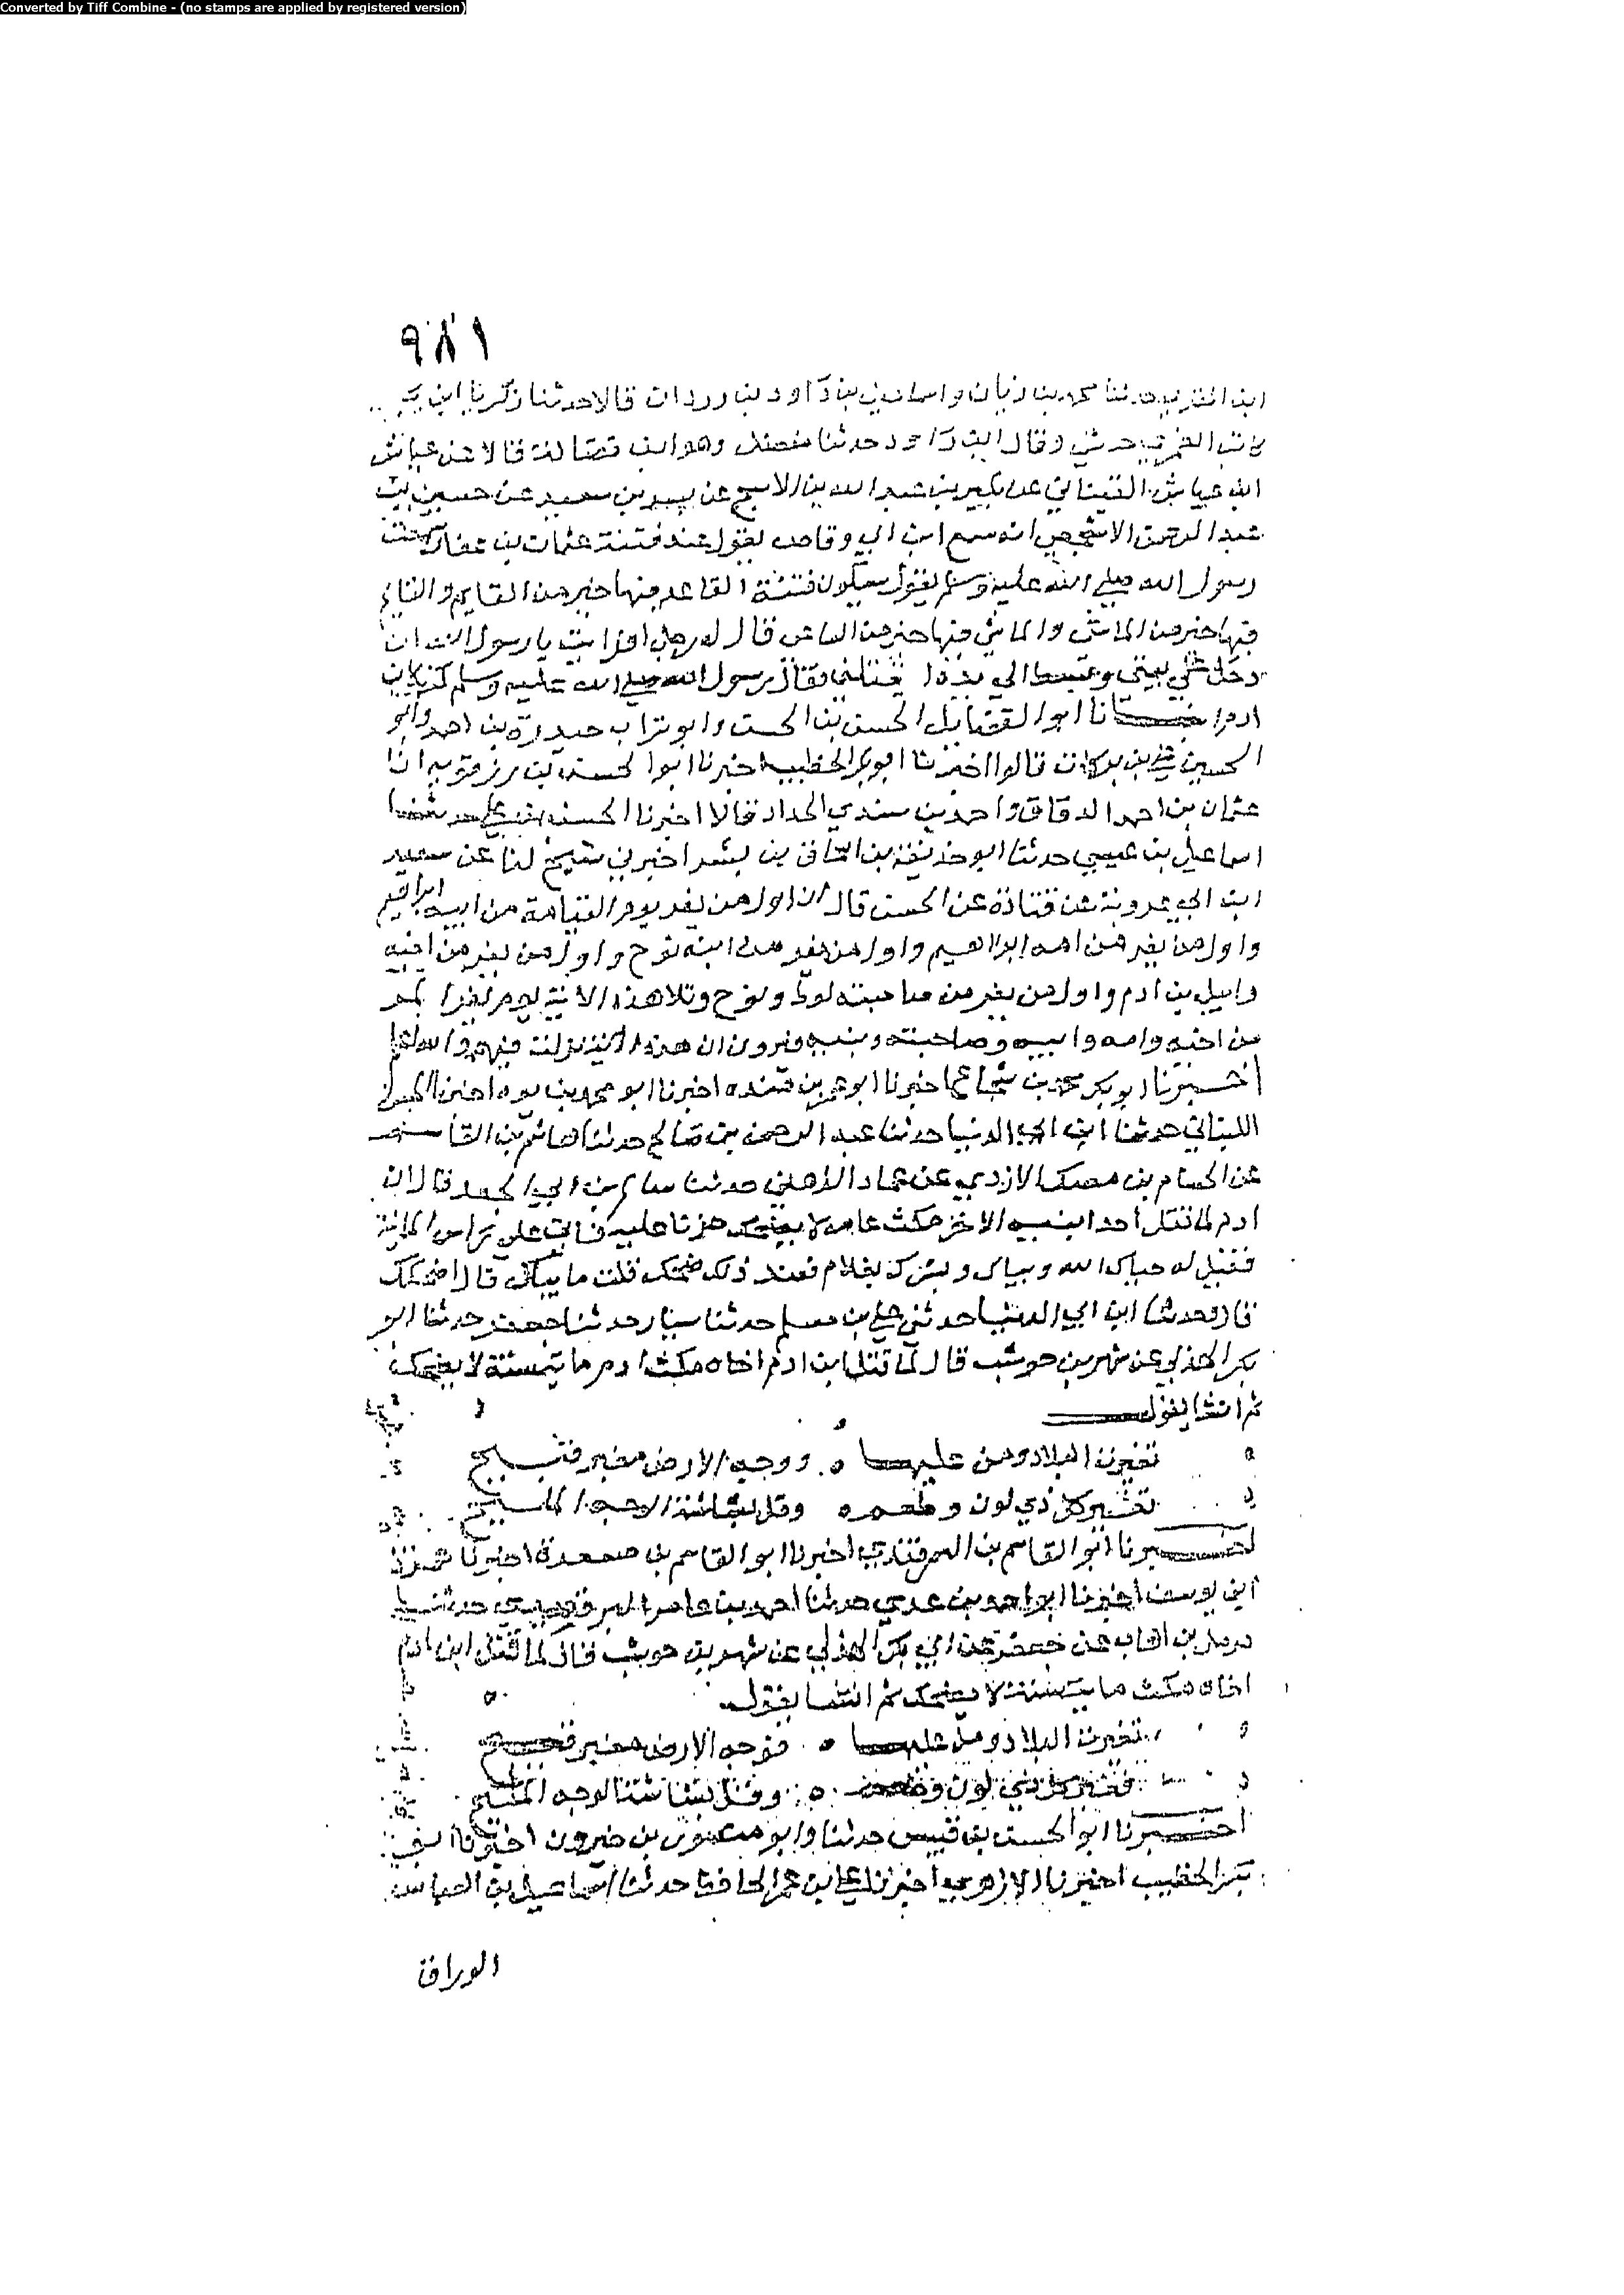 Converted by Tiff Combine - (no stamps are applied by registered version)
٩٨١
ابن المقرى حدثنا محمد بن زبان واسماعيل بن داود بن وردان قالا حدثنا زكريا ابن يحيى
كاتب العمري حدثني وقال ابن داود حدثنا مفضل وهو ابن فضالة قالا عن عياش
ابن عياش القتباني عن بكير بن عبد الله بن الاشج عن بسر بن سعيد عن حسين بن
عبد الرحمن الاشجعي انه سمع ابن ابي وقاص يقول عند فتنة عثمان بن عفان سمعت
رسول الله صلى الله عليه وسلم يقول سيكون فتنة القاعد فيها خير من القايم والقايم
فيها خير من الماشي والماشي فيها خير من الساعي قال له رجل افرايت يا رسول الله ان
دخل علي بيتي وبسط الي يده يقتلني فقال رسول الله صلى الله عليه وسلم كن كابن
ادم انبانا ابو الفضايل الحسن بن الحسن وابو تراب حيدرة بن احمد وابو
الحسين بن بركات قالوا اخبرنا ابو بكر الخطيب اخبرنا ابو الحسن بن رزقويه انا
عثمان بن احمد الدقاق واحمد بن سندي الحداد قالا اخبرنا الحسن بن علي حدثنا
اسماعيل بن عيسى حدثنا ابو حذيفة بن اسحاق بن بشر اخبرني شيخ لنا عن سعيد
ابن ابي عروبة عن قتادة عن الحسن قال ان اول من يفر يوم القيامة من ابيه ابراهيم
واول من يفر من امه ابراهيم واول من يفر من ابنه نوح واول من يفر من اخيه
هابيل بن ادم واول من يفر من صاحبته لوط ونوح وتلا هذه الاية يوم يفر المرء
من اخيه وامه وابيه وصاحبته وبنيه فيرون ان هذه الاية نزلت فيهم والله اعلم
اخبرنا ابو بكر محمد بن شجاع اخبرنا ابو عمرو بن منده اخبرنا ابو محمد بن يوه اخبرنا ابو الحسن
اللبناني حدثنا ابن ابي الدنيا حدثنا عبد الرحمن بن صالح حدثنا هاشم بن القاسم
عن الحسام بن مصك الازدي عن عمار الدهني حدثنا سالم بن ابي الجعد قال ان
ادم لما قتل احد ابنيه الاخر مكث عام لا يضحك حزنا عليه فاتى على راس الماية
فقيل له حياك الله وبياك وبشرك بغلام فعند ذلك ضحك قلت ما بياك قال اضحكك
قال وحدثنا ابن ابي الدنيا حدثني علي بن مسلم حدثنا سيار حدثنا جعفر حدثنا ابو
بكر الهذلي عن شهر بن حوشب قال لما قتل ابن ادم اخاه مكث ادم ماية سنة لا يضحك
ثم انشا يقول
تغيرت البلاد ومن عليها ووجه الارض مغبر قبيح
تغير كل ذي لون وطعم وقل بشاشة الوجه المليح
اخبرنا ابو القاسم بن السمرقندي اخبرنا ابو القاسم بن مسعدة اخبرنا حمزة
ابن يوسف اخبرنا ابو احمد بن عدي حدثنا احمد بن عامر البرقعيدي حدثنا
مومل بن اهاب عن جعفر عن ابي بكر الهذلي عن شهر بن حوشب قال لما قتل ابن ادم
اخاه مكث ماية سنة لا يضحك ثم انشا يقول
تغيرت البلاد ومن عليها فوجه الارض مغبر قبيح
تغير كل ذي لون وطعم وقل بشاشة الوجه المليح
اخبرنا ابو الحسن بن قبيس حدثنا وابو منصور بن خيرون اخبرنا ابو
بكر الخطيب اخبرنا الازهري اخبرنا علي بن عمر الحافظ حدثنا اسماعيل بن العباس
الوراق